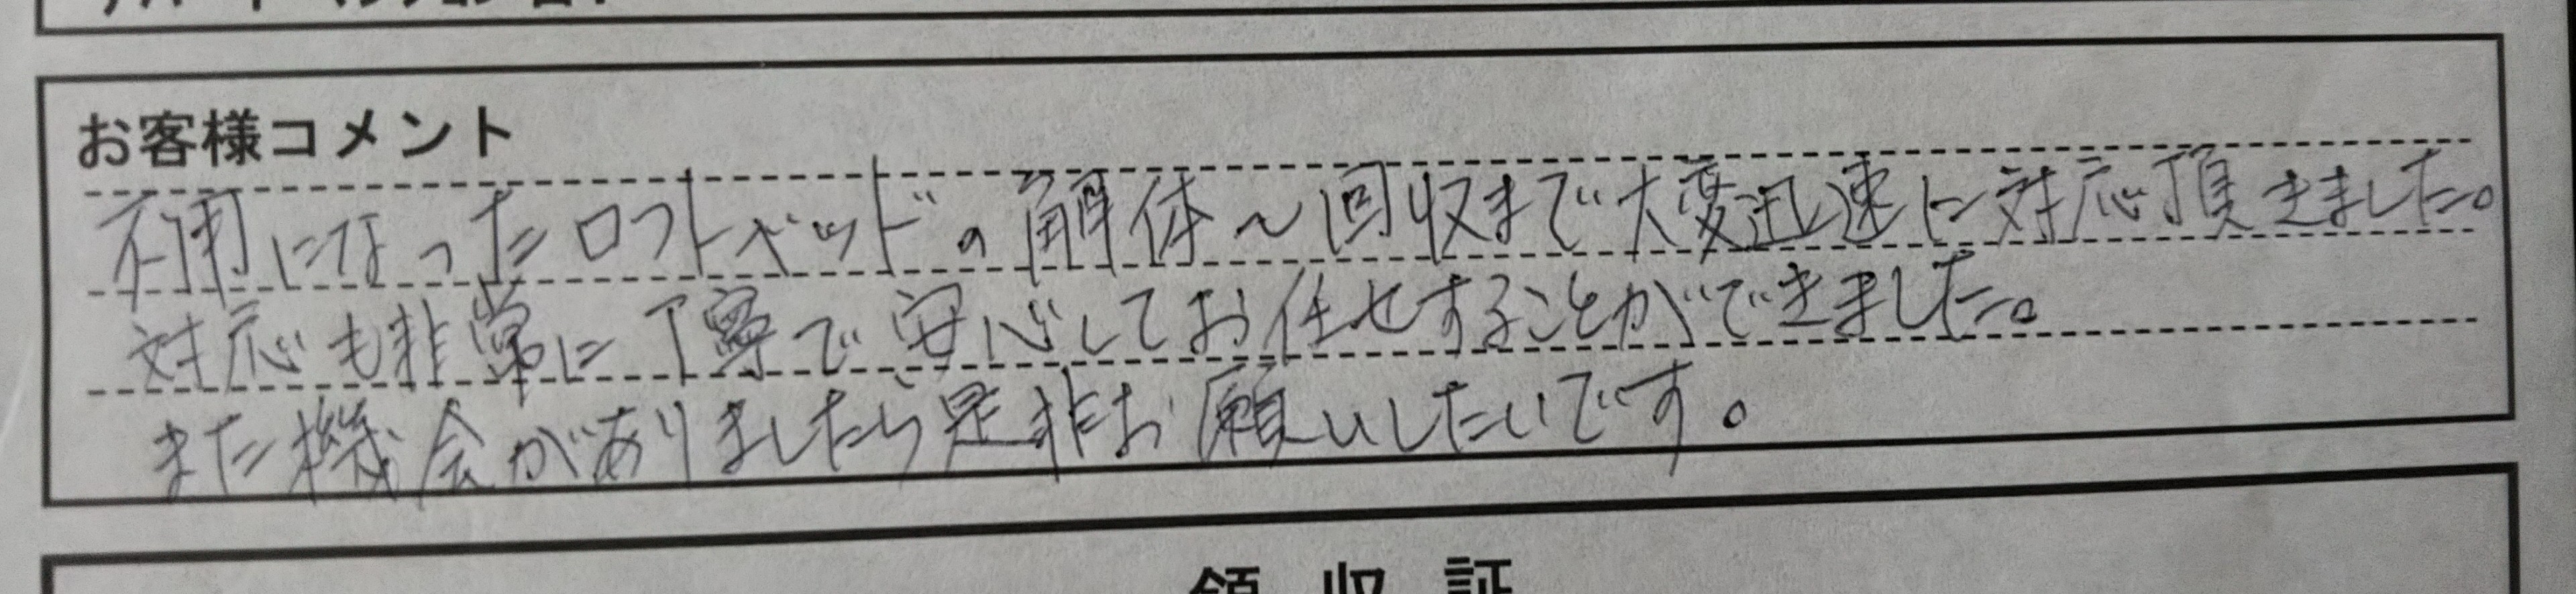 お客様コメント
不用になったロフトベッドの解体～回収まで大変迅速に対応頂きました。
対応も非常に丁寧で安心してお任せすることができました。
また機会がありましたら是非お願いしたいです。
領収証